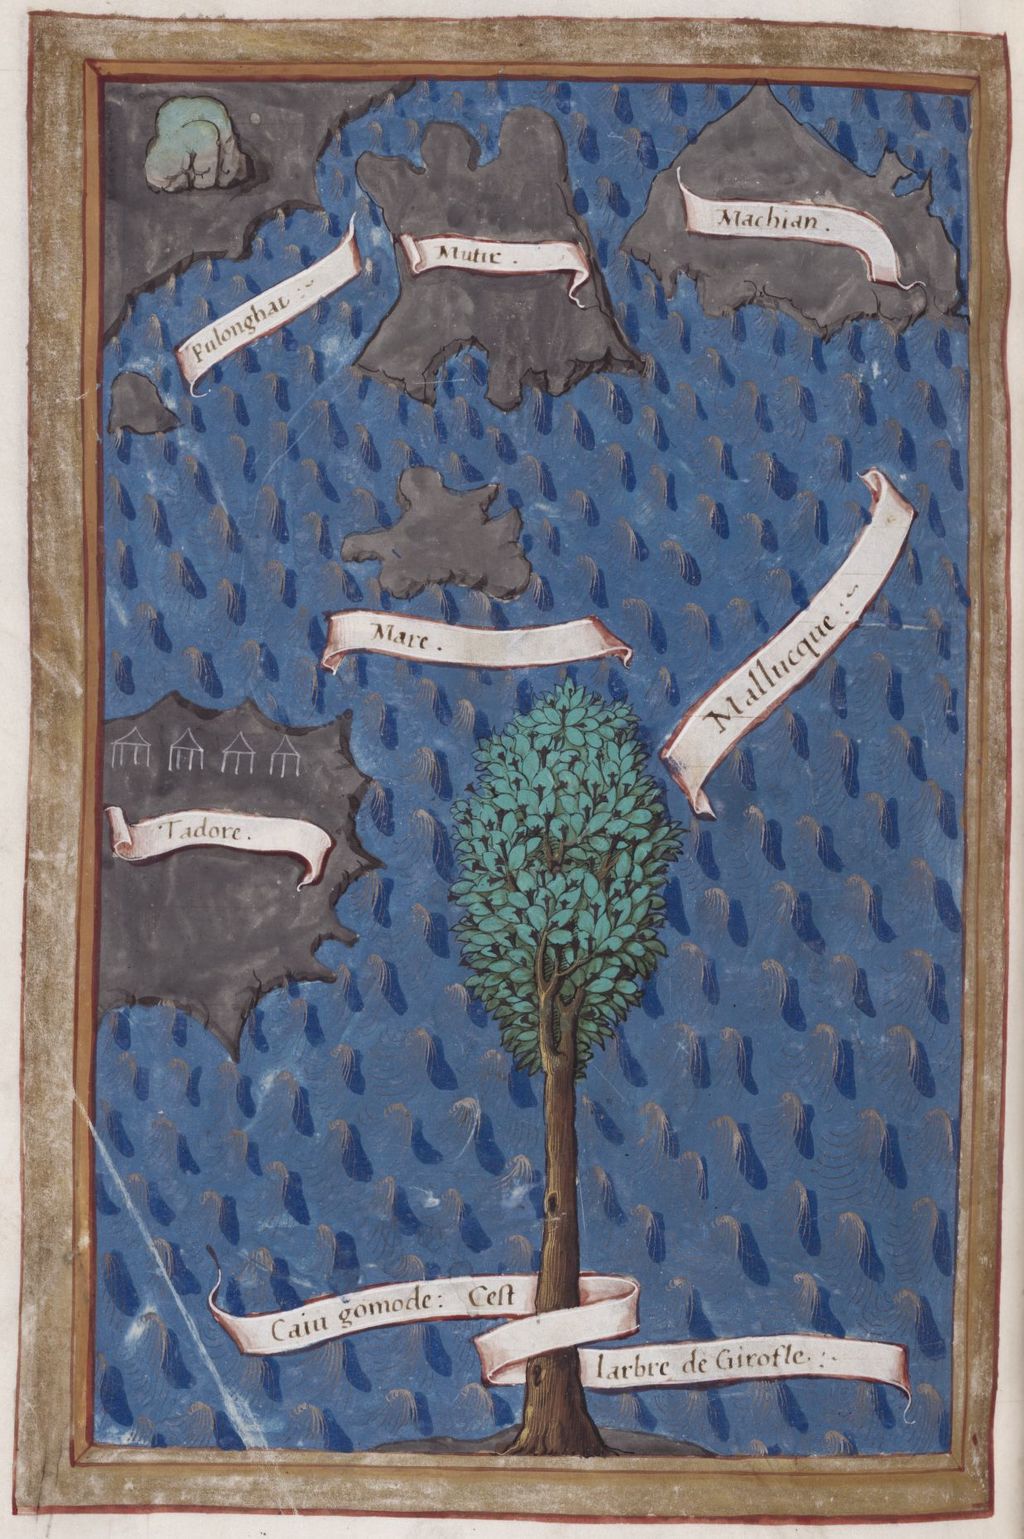 Pulonghai :~
Mutir .
Machian .
Mare .
Mallucque :~
Tadore .
Caiu gomode : Cest
larbre de Girofle .: